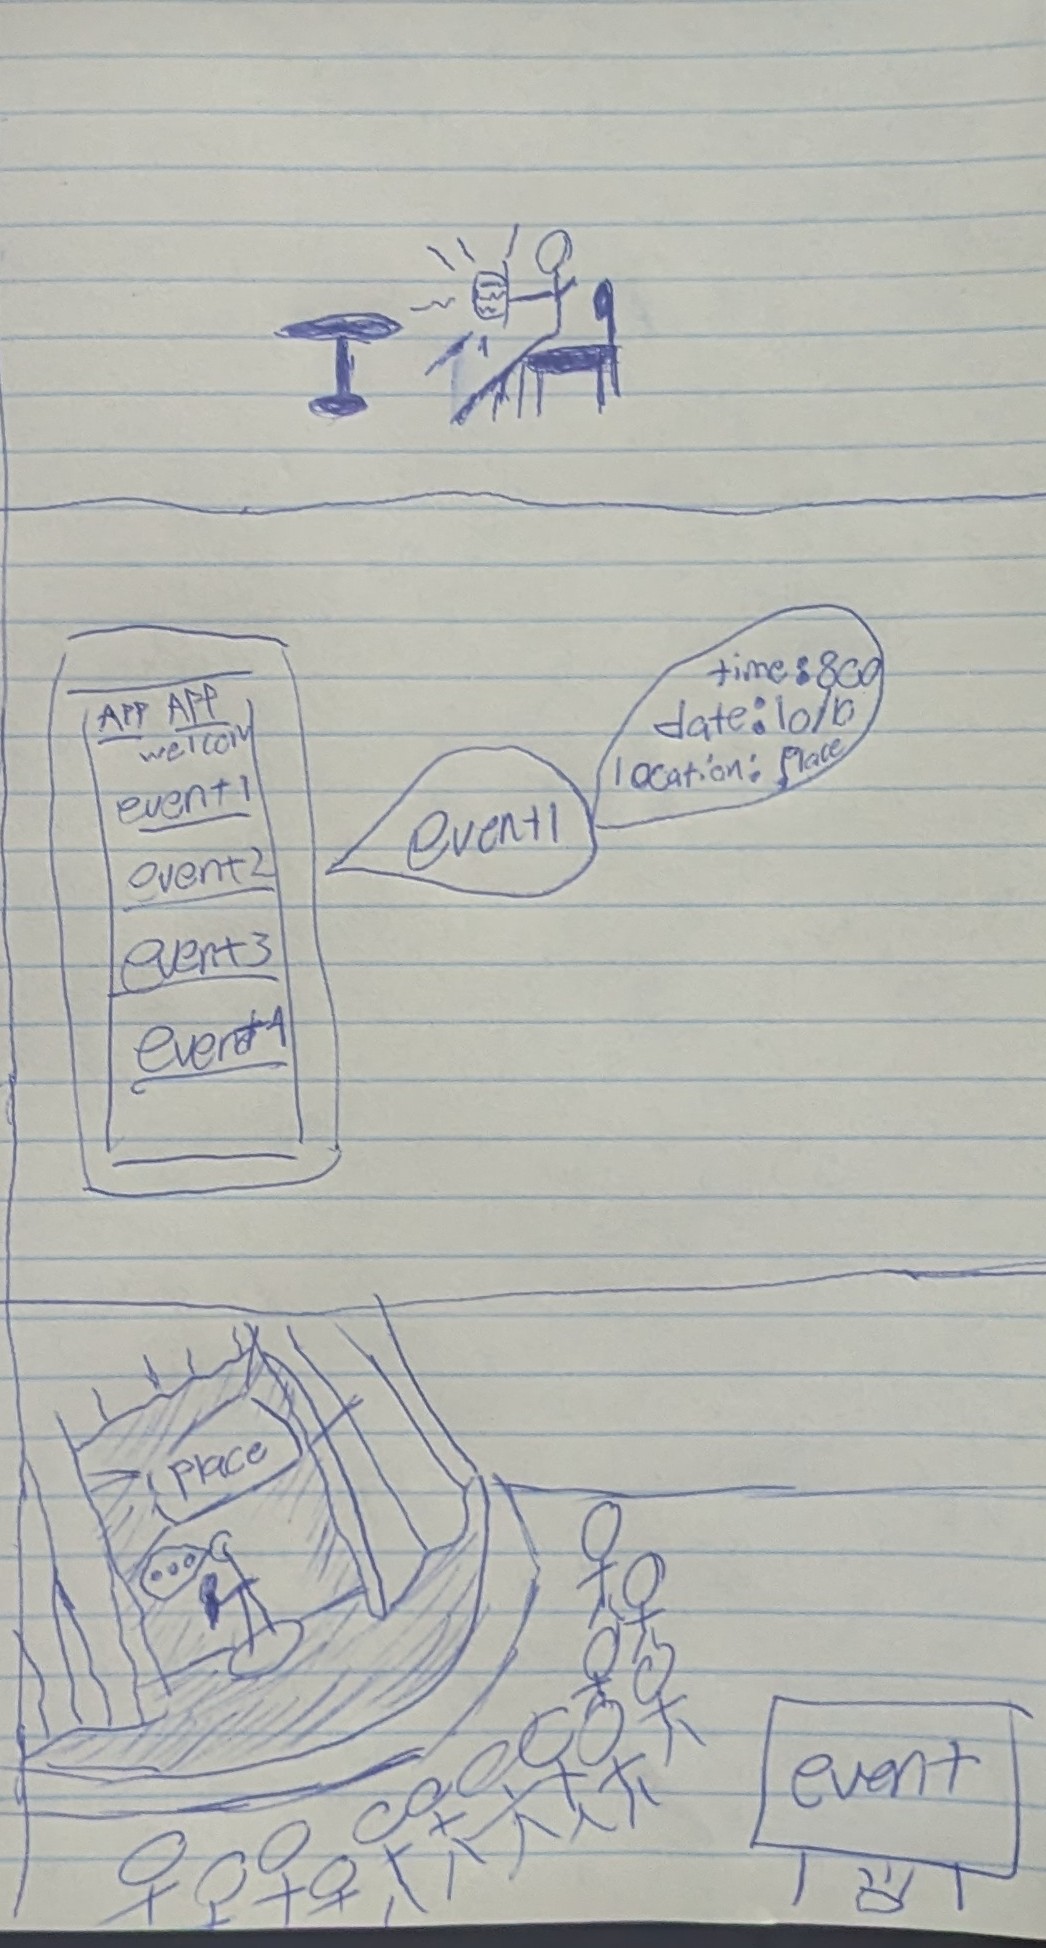 APP APP
welcom
event1
event2
event3
event4
event1
time:800
date:10/10
location: place
place
event